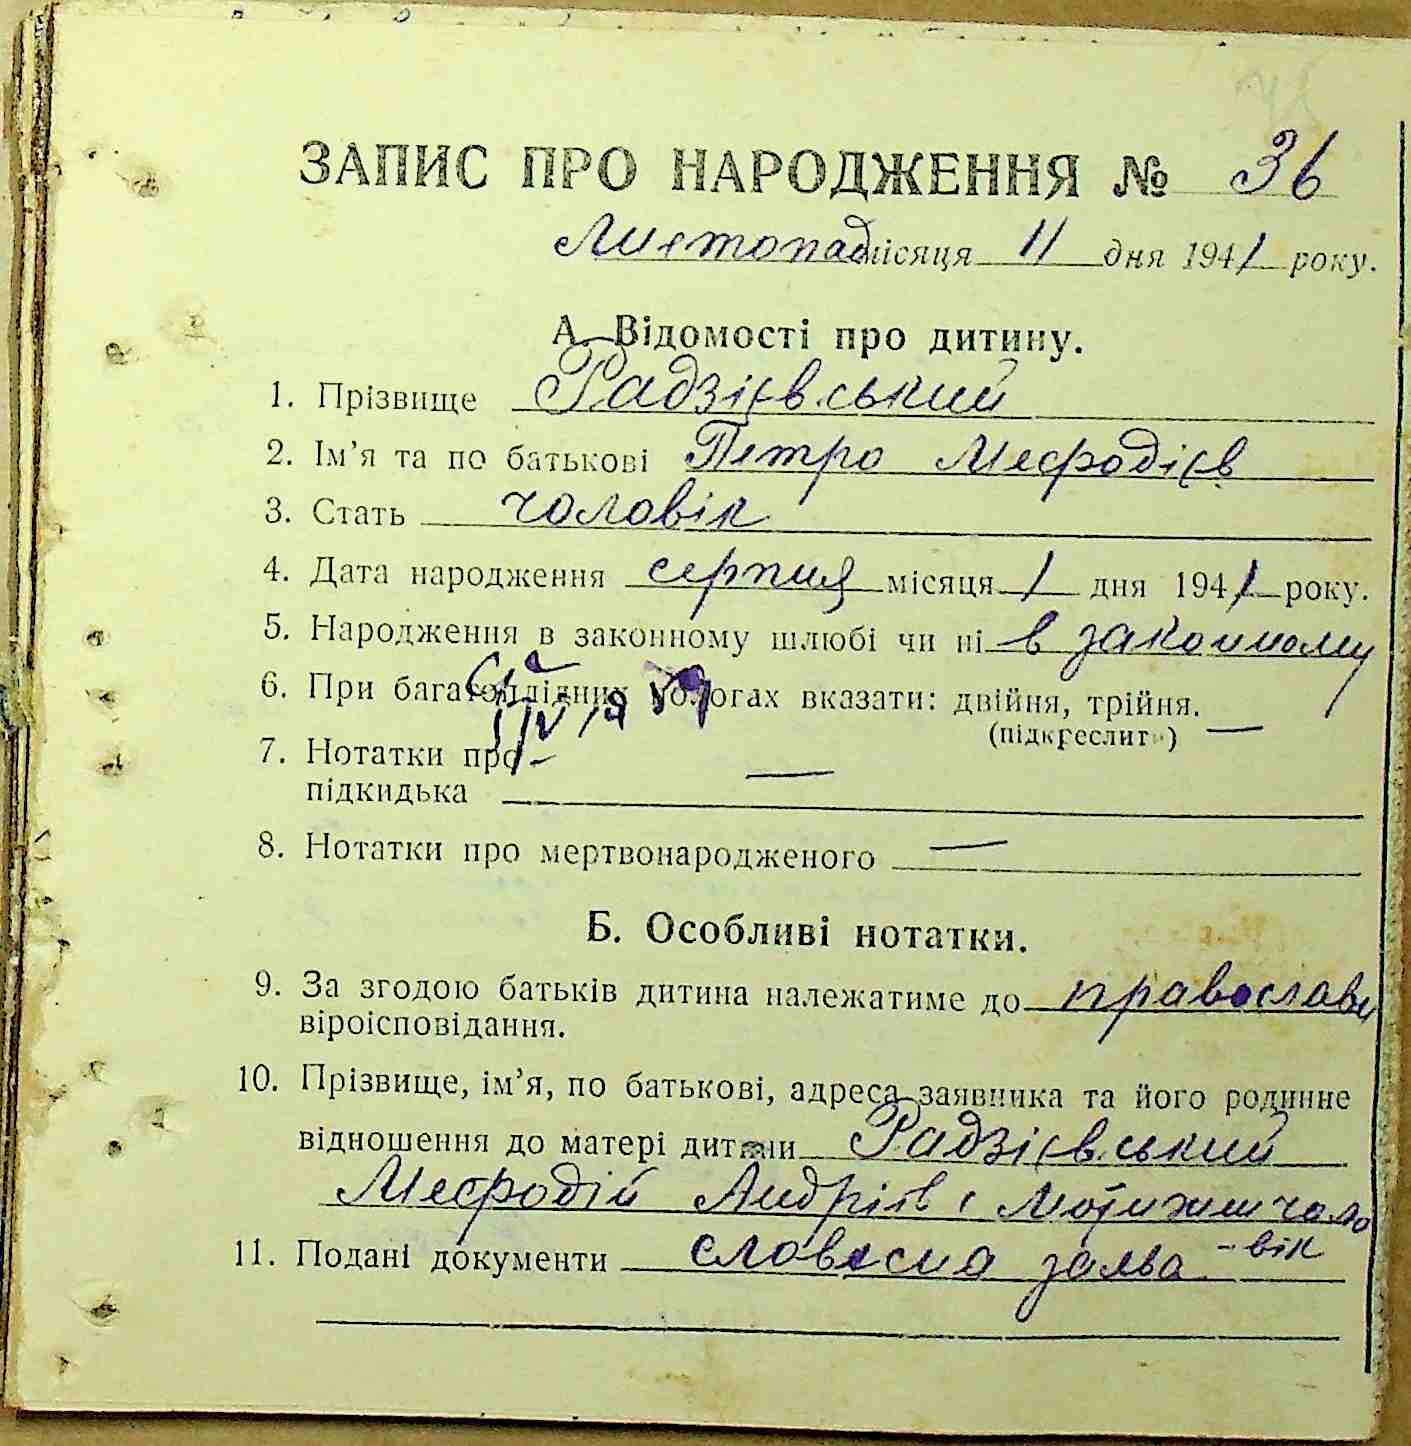 ЗАПИС ПРО НАРОДЖЕННЯ № 36
Листопад місяця 11 дня 1941 року.
А. Відомості про дитину.
1. Прізвище Радзієвський
2. Ім’я та по батькові Петро Мефодієв
3. Стать чоловік
4. Дата народження серпня місяця 1 дня 1941 року.
5. Народження в законному шлюбі чи ні в законному
6. При багатоплідних пологах вказати: двійня, трійня.
(підкреслити) —
7. Нотатки про
підкидька —
8. Нотатки про мертвонародженого —
Б. Особливі нотатки.
9. За згодою батьків дитина належатиме до православн
віроісповідання.
10. Прізвище, ім’я, по батькові, адреса заявника та його родинне
відношення до матері дитини Радзієвський
Мефодій Андріїв с чоло
-вік
11. Подані документи словесна заява